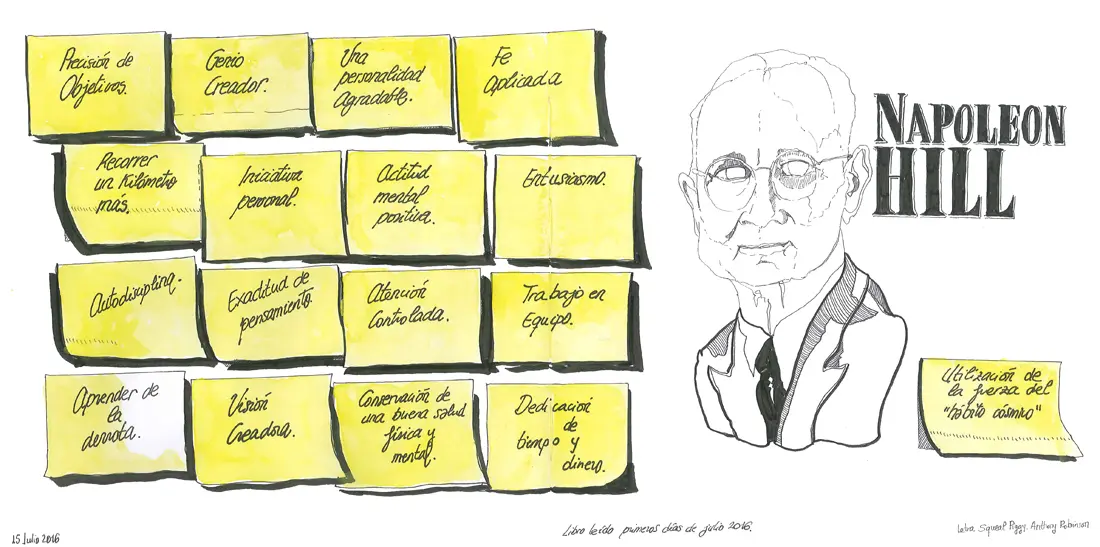 Precisión de
Objetivos.
Genio
Creador.
Una
personalidad
Agradable.
Fe
Aplicada
Recorrer
un Kilómetro
más.
Iniciativa
personal.
Actitud
mental
positiva.
Entusiasmo.
Autodisciplina.
Exactitud de
pensamiento.
Atención
Controlada.
Trabajo en
Equipo.
Aprender de
la
derrota.
Visión
Creadora.
Conservación de
una buena salud
física y
mental.
Dedicación
de
tiempo y
dinero.
NAPOLEON
HILL
Utilización de
la fuerza del
"hábito cósmico"
15 Julio 2016
Libro leído primeros días de julio 2016.
Letra. Squeal Piggy. Anthony Robinson